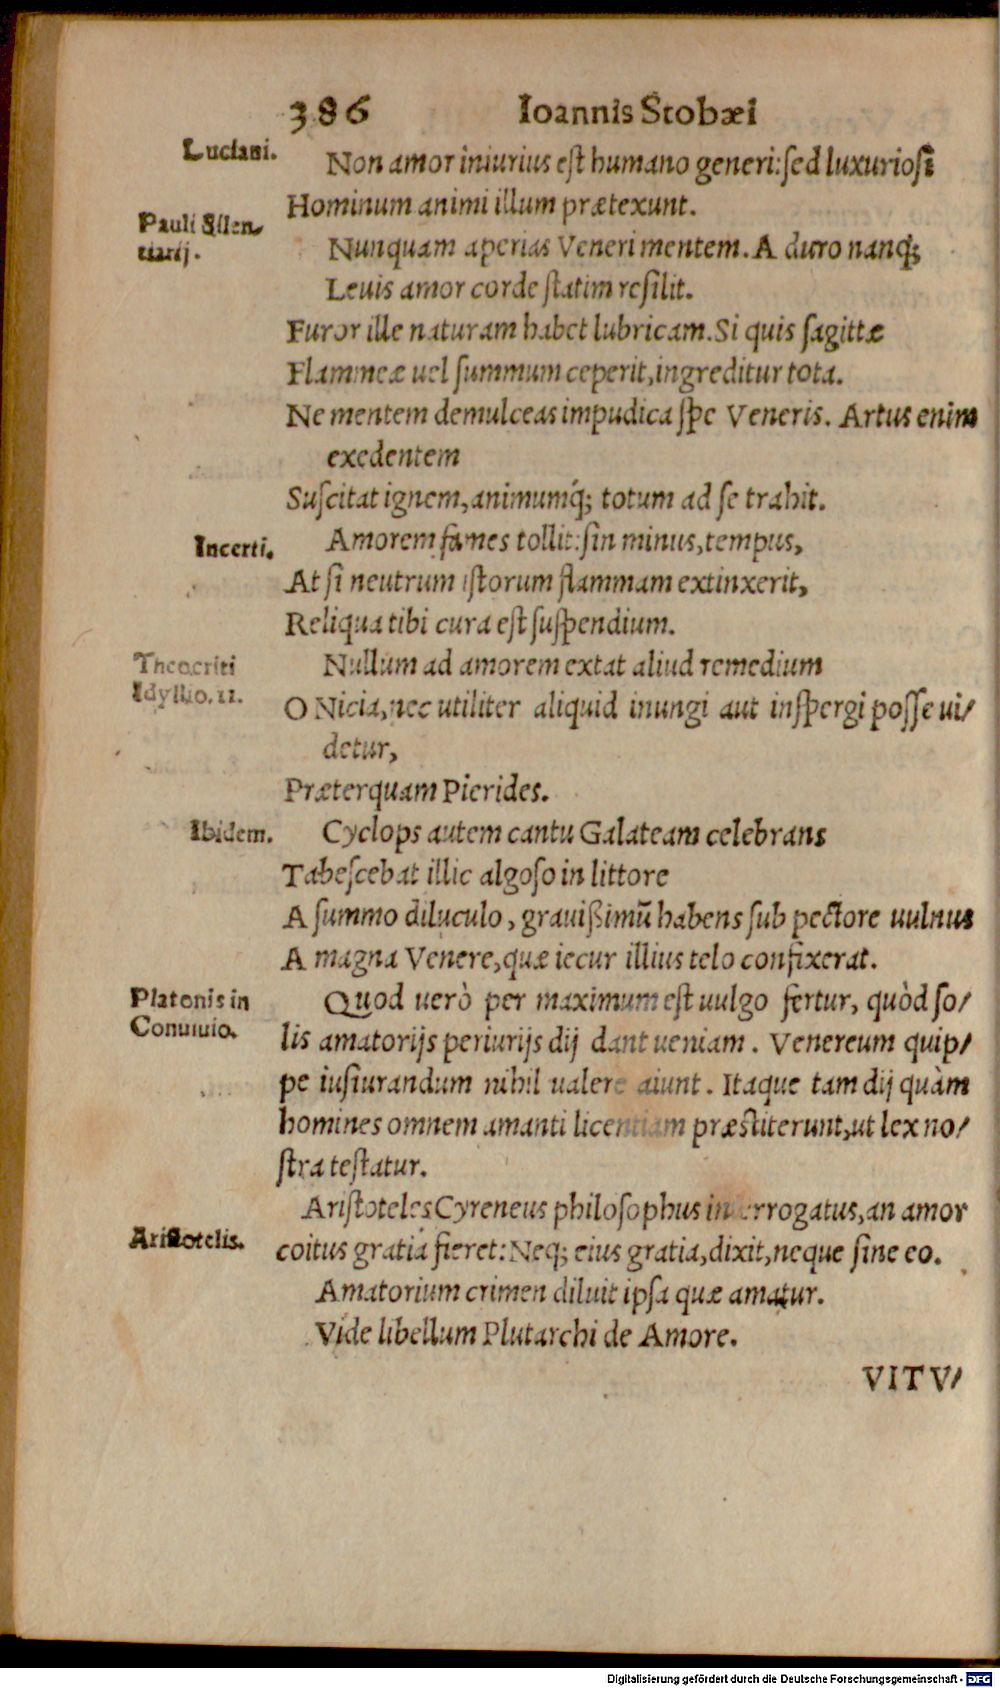 386 Ioannis Stobæi
Luciani.
Non amor iniurius est humano generi: sed luxuriosi
Hominum animi illum prætexunt.
Pauli Silen-
tiarij.
Nunquam aperias Veneri mentem. A duro nanq;
Leuis amor corde statim resilit.
Furor ille naturam habet lubricam. Si quis sagittæ
Flammeæ uel summum ceperit, ingreditur tota.
Ne mentem demulceas impudica spe Veneris. Artus enim
exedentem
Suscitat ignem, animumq́; totum ad se trahit.
Incerti.
Amorem fames tollit: sin minus, tempus,
At si neutrum istorum flammam extinxerit,
Reliqua tibi cura est suspendium.
Theocriti
Idyllio. 11.
Nullum ad amorem extat aliud remedium
O Nicia, nec utiliter aliquid inungi aut inspergi posse ui-
detur,
Præterquam Pierides.
Ibidem.
Cyclops autem cantu Galateam celebrans
Tabescebat illic algoso in littore
A summo diluculo, grauißimũ habens sub pectore uulnus
A magna Venere, quæ iecur illius telo confixerat.
Platonis in
Conuiuio.
Quod uerò per maximum est uulgo fertur, quòd so-
lis amatorijs periurijs dij dant ueniam. Venereum quip-
pe iusiurandum nihil ualere aiunt. Itaque tam dij quàm
homines omnem amanti licentiam præstiterunt, ut lex no-
stra testatur.
Aristotelis.
Aristoteles Cyreneus philosophus interrogatus, an amor
coitus gratia fieret: Neq; eius gratia, dixit, neque sine eo.
Amatorium crimen diluit ipsa quæ amatur.
Vide libellum Plutarchi de Amore.
VITV-
Digitalisierung gefördert durch die Deutsche Forschungsgemeinschaft - DFG